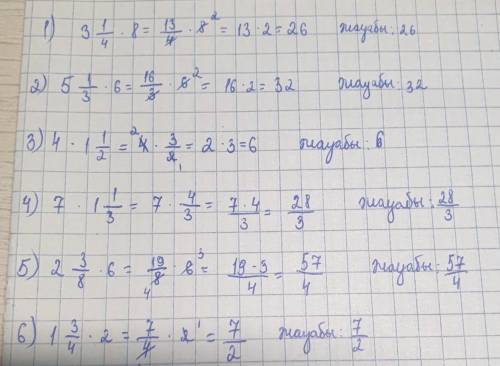 1) 3 1/4 · 8 = 13/4 · 8 2 = 13 · 2 = 26 жауабы: 26
2) 5 1/3 · 6 = 16/3 · 6 2 = 16 · 2 = 32 жауабы: 32
3) 4 · 1 1/2 = 2 4 · 3/2 1 = 2 · 3 = 6 жауабы: 6
4) 7 · 1 1/3 = 7 · 4/3 = 7 · 4/3 = 28/3 жауабы: 28/3
5) 2 3/8 · 6 = 19/8 4 · 6 3 = 19 · 3/4 = 57/4 жауабы: 57/4
6) 1 3/4 · 2 = 7/4 · 2 1 = 7/2 жауабы: 7/2